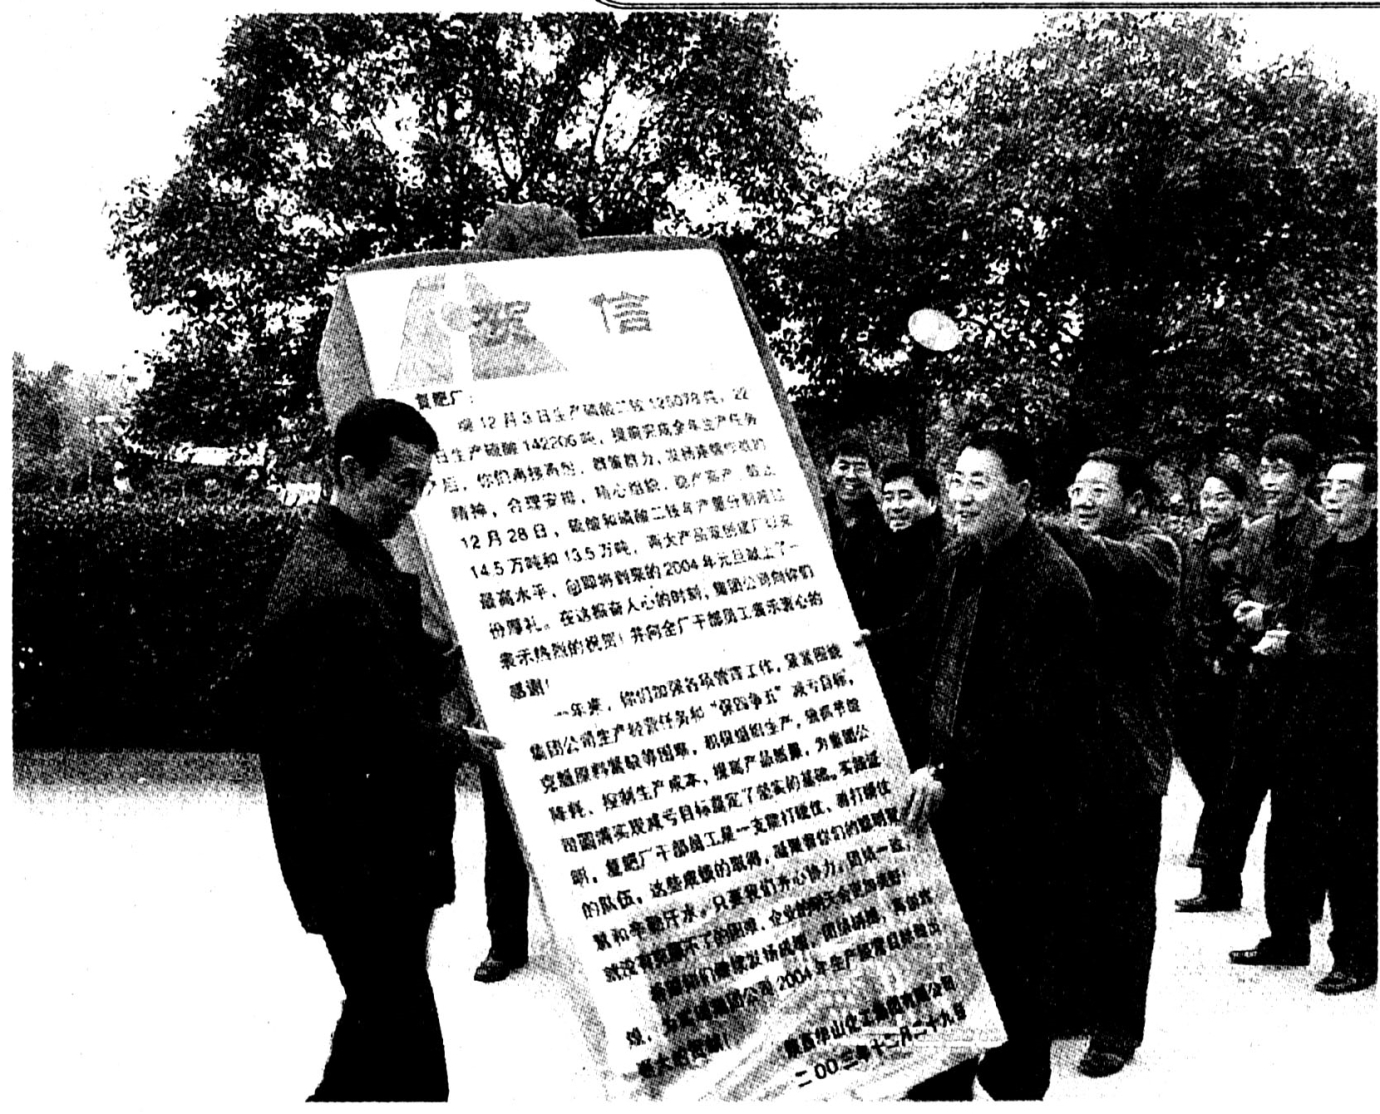 贺信
复肥厂：
继12月3日生产磷酸二铵125078吨，22
日生产硫酸142206吨，提前完成全年生产任务
后，你们再接再厉，群策群力，发扬连续作战的
精神，合理安排，精心组织，稳产高产，截止
12月28日，硫酸和磷酸二铵年产量分别突过
14.5万吨和13.5万吨，两大产品双创建厂以来
最高水平，向即将到来的2004年元旦献上了一
份厚礼。在这振奋人心的时刻，集团公司向你们
表示热烈的祝贺！并向全厂干部员工表示衷心的
感谢！
一年来，你们加强各项管理工作，紧紧围绕
集团公司生产经营任务和“保四争五”减亏目标，
克服原料紧缺等困难，积极组织生产，狠抓节能
降耗，控制生产成本，提高产品质量，为集团公
司圆满实现减亏目标奠定了坚实的基础。实践证
明，复肥厂干部员工是一支能打硬仗，善打硬仗
的队伍，这些成绩的取得，凝聚着你们的聪明智
慧和辛勤汗水。只要我们齐心协力，团结一致，
就没有克服不了的困难，企业的明天会更加美好！
希望你们继续发扬成绩，团结拼搏，再创辉
煌，为实现集团公司2004年生产经营目标做出
更大的贡献！
陕西华山化工集团有限公司
二00三年十二月二十九日